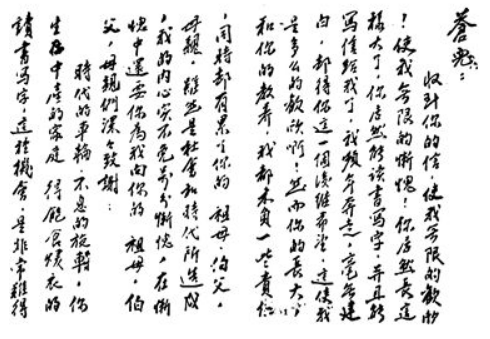 蒼兒：
收到你的信，使我無限的歡欣
！使我無限的慚愧！你居然長這
樣大了，你居然能讀書寫字，并且能
寫信給我了，我頻年奔走，毫無建
白，都得你這一個後繼希望，這使我
是多么的歡欣啊！然而你的長大，
和你的教養，我都未負一些責任
，同時都有累了你的 祖母，伯父，
母親，雖然是社會和時代所造成
，我的內心实不免萬分慚愧，在慚
愧中還要你為我向你的 祖母，伯
父，母親們深々致謝：
時代的車輪，不息的旋轉，你
生在中產的家庭 得飽食煖衣的
讀書寫字，這種機會，是非常難得